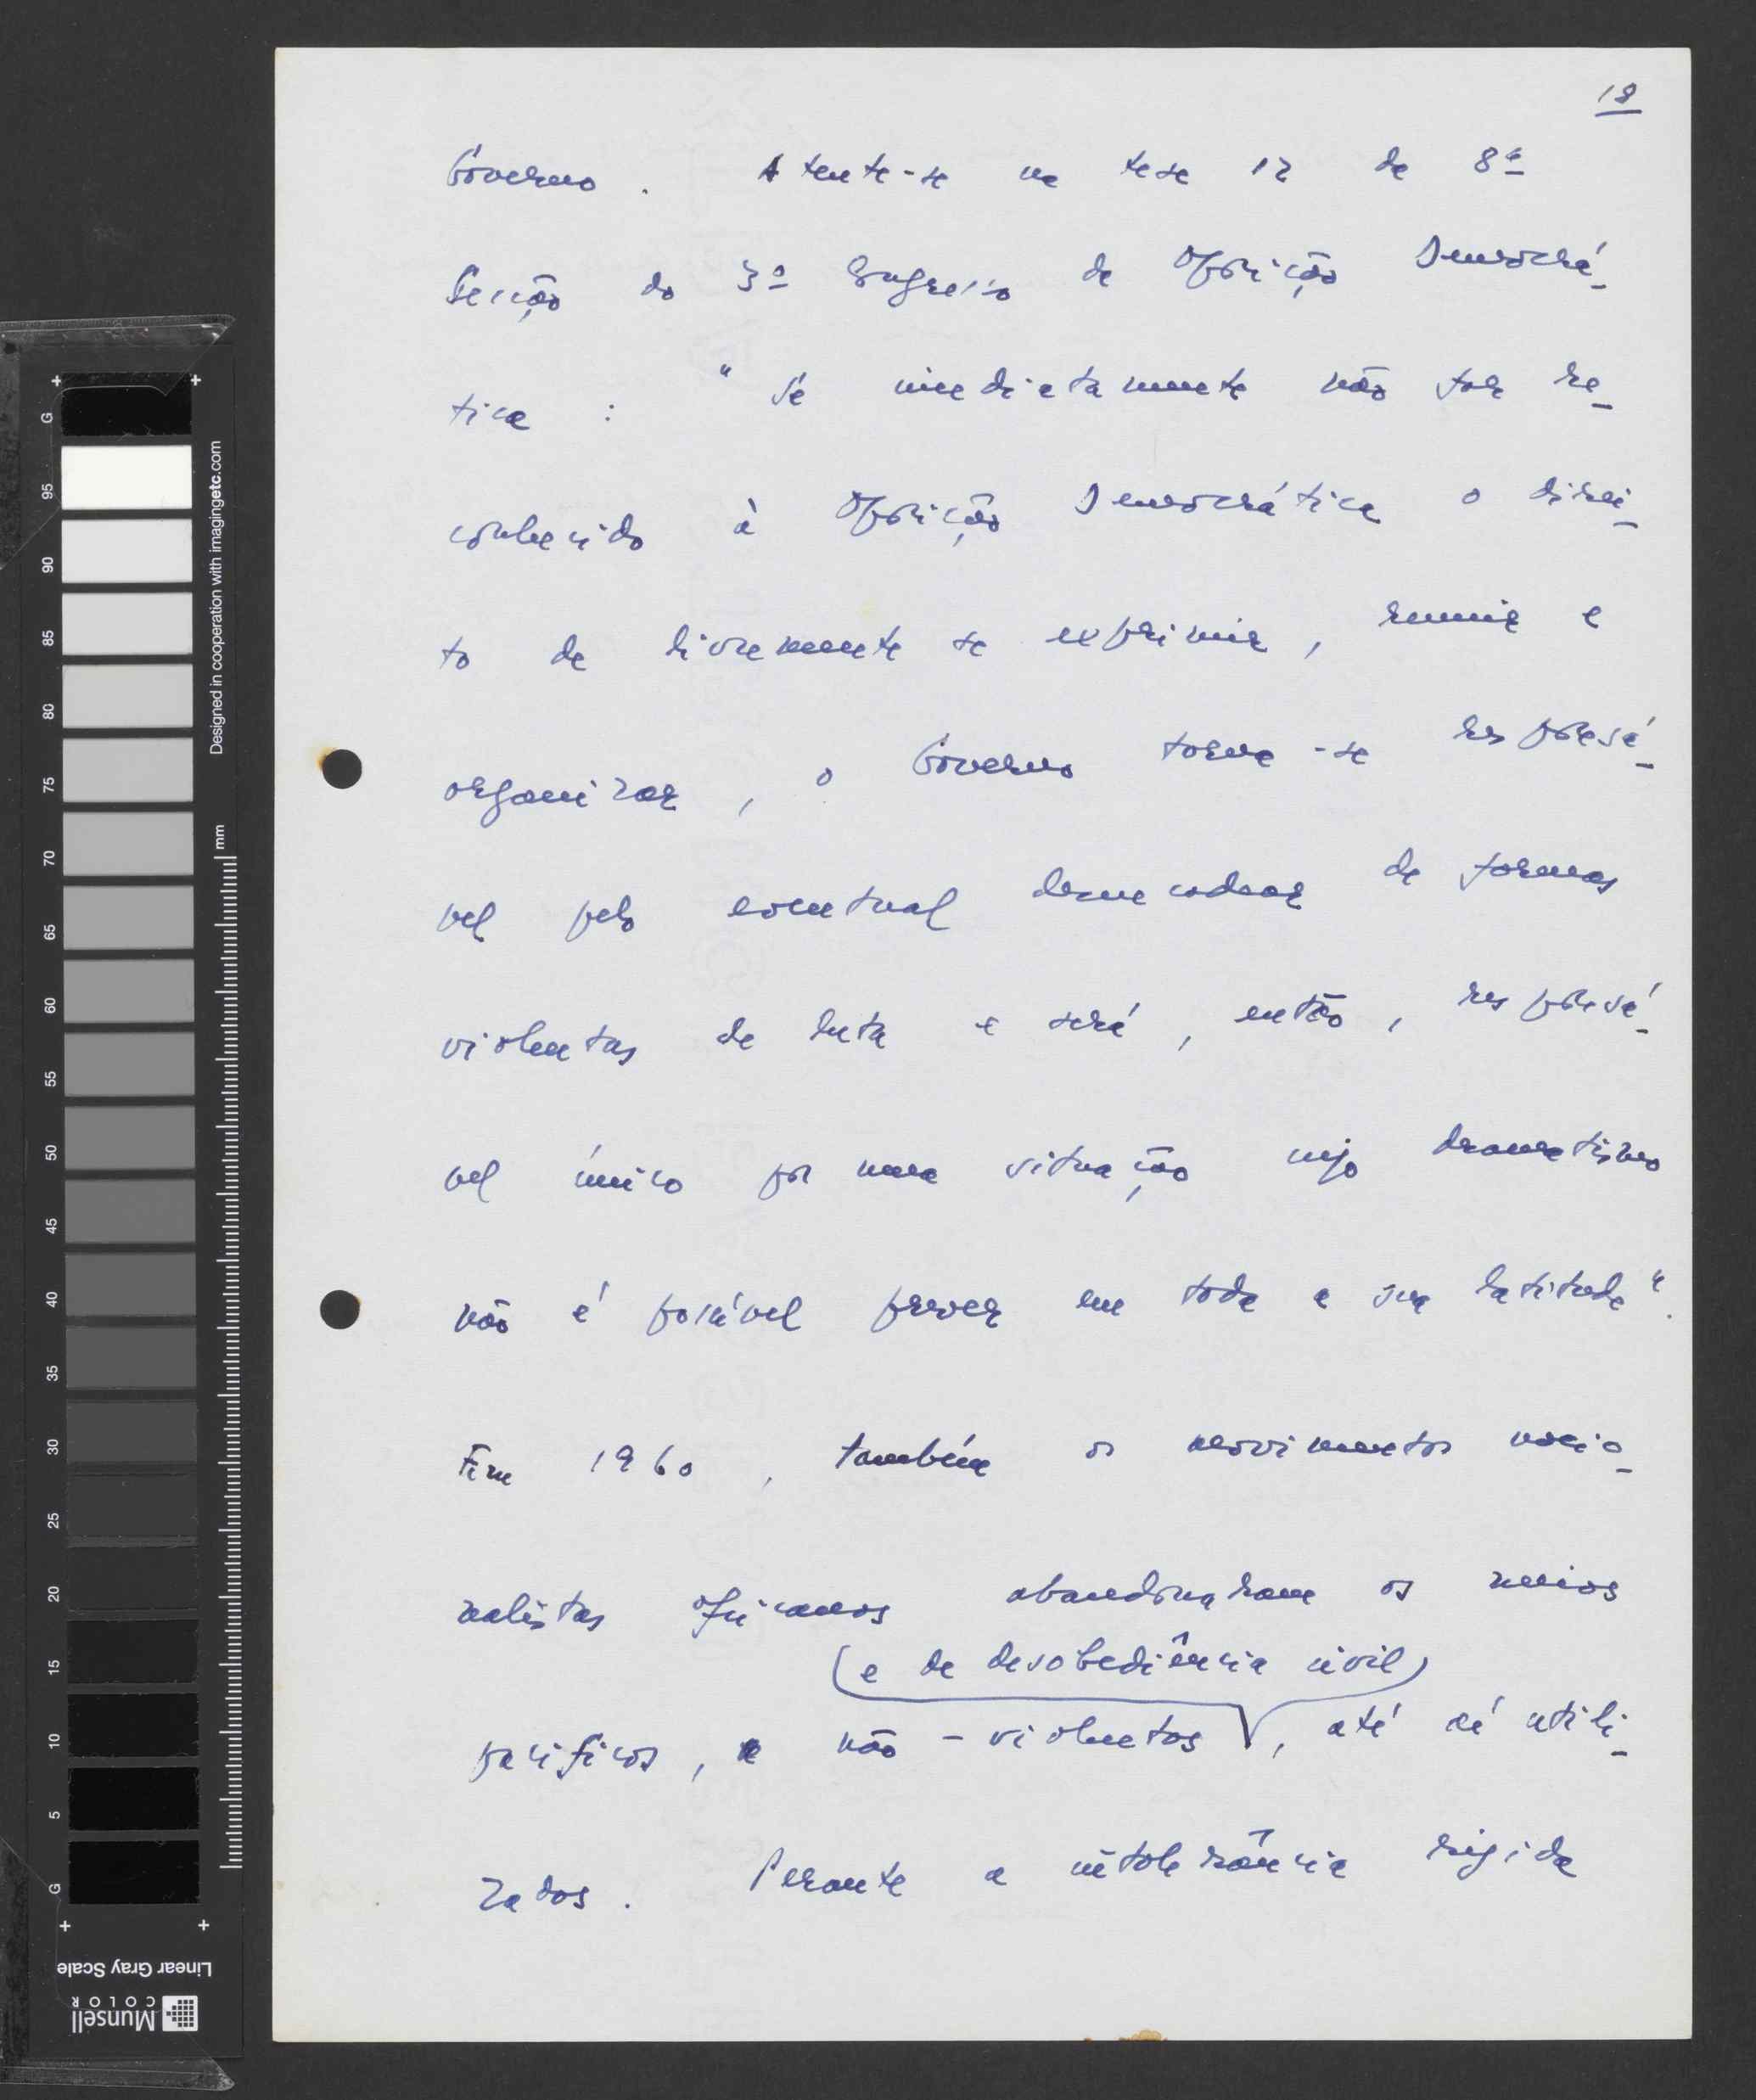 18
Governo. Atente-se na tese 12 da 8ª
Secção do 3º Congresso da Oposição Democrá-
tica : "Se imediatamente não for re-
conhecido à Oposição Democrática o direi-
to de livremente se exprimir, reunir e
organizar, o Governo torna-se responsá-
vel pelo eventual desencadear de formas
violentas de luta e será, então, responsá-
vel único por uma situação cujo dramatismo
não é possível prever em toda a sua latitude".
Em 1960, também os movimentos nacio-
nalistas africanos abandonaram os meios
(e de desobediência civil)
pacíficos, e não-violentos, até aí utili-
zados. Perante a intolerância rígida
G
95
90
85
80
75
70
65
60
55
50
45
40
35
30
25
20
15
10
5
G
Designed in cooperation with imagingetc.com
mm
Linear Gray Scale
Munsell
COLOR